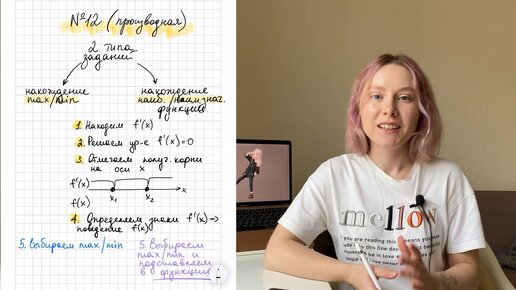 №12 (производная)
2 типа
заданий
нахождение
max/min
нахождение
наиб./наим. знач.
функции
1. Находим f'(x)
2. Решаем ур-е f'(x)=0
3. Отмечаем получ. корни
на оси x
f'(x)
x₁ x₂ x
f(x)
4. Определяем знаки f'(x) ⇒
поведение f(x)
5. Выбираем max/min
5. Выбираем
max/min и
подставляем
в функцию
mellow
if you are reading this it means you